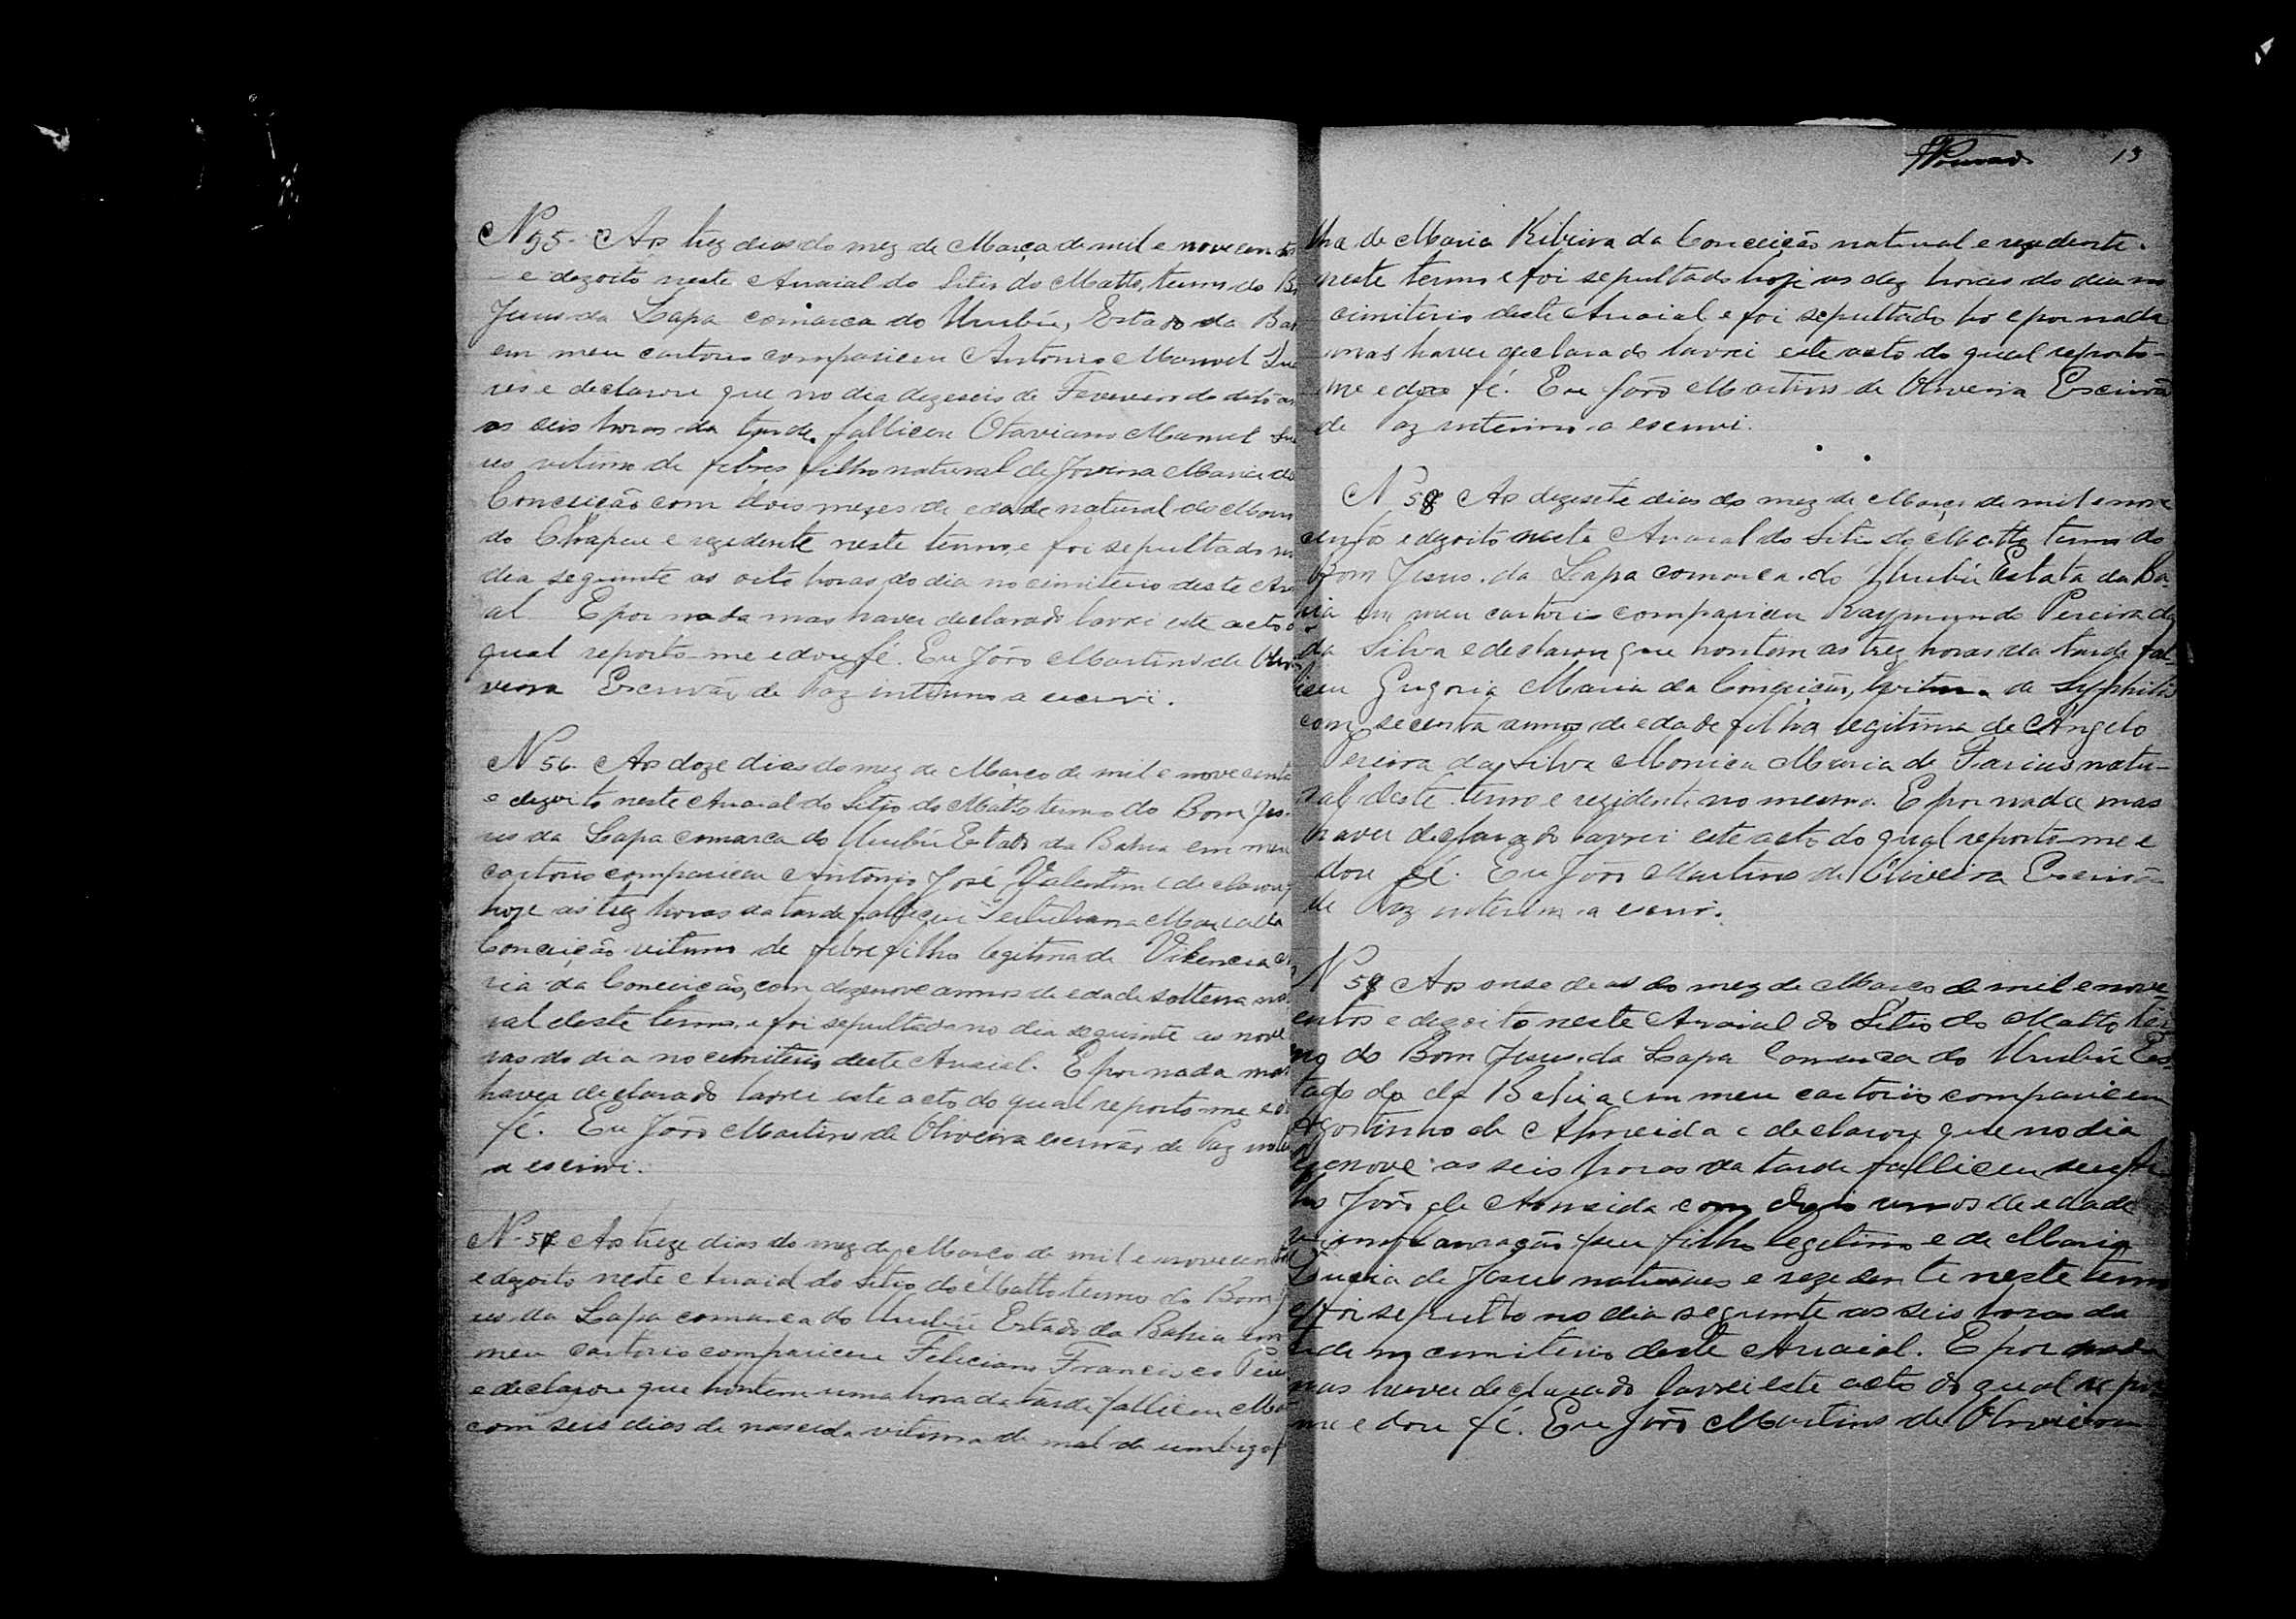 N 55. Aos trez dias do mez de Março de mil e nove centos
e dezoito neste Arraial do Sitio do Matto, termo do B
Jesus da Lapa comarca do Urubú, Estado da Ba
em meu cartorio compariceu Antonio Manoel
res e declarou que no dia dezeseis de Fevereiro do dito
as seis horas da tarde falliceu Otaviano Manoel
res vitima de febres filho natural de Jovina Maria da
Conceição com dois mezes de edade natural do Morro
do Chapeu e rezedente neste termo, e foi sepultado no
dia seguinte as oito horas do dia no cimiterio deste Arra
al E por nada mas haver declarado lavrei este acto do
qual reporto-me e dou fé. Eu João Martins de Oli
veira Escrivão de Paz interino a escrevi.
N 56. Aos doze dias do mez de Março de mil e nove cento
e dezoito neste Arraial do Sitio do Matto termo do Bom Je
sus da Lapa comarca do Urubú Estado da Bahia em meu
cartorio compariceu Antonio José Valentim e declarou q
hoje as trez horas da tarde falliceu Maria da
Conceição vitima de febre filha legitima de Vicencia
ria da Conceição, com dezenove annos de edade solteira natu
ral deste termo, e foi sepultada no dia seguinte as nove
ras do dia no cemiterio deste Arraial. E por nada mas
haver declarado lavrei este acto do qual reporto me e do
fé. Eu João Martins de Oliveira escrivão de Paz inte
a escrevi.
N. 57 Aos treze dias do mez de Março de mil e novecento
e dezoito neste Arraial do Sitio do Matto termo do Bom J
us da Lapa comarca do Urubú Estado da Bahia em
meu cartorio compariceu Feliciano Francisco
e declarou que hontem uma hora da tarde falliceu
com seis dias de nascida vitima de mal de umbigo f
13
lha de Maria Ribeira da Conceição natural e rezedente
neste termo e foi sepultado hoje as dez horas do dia no
cimiterio deste Arraial e foi sepultado ho e por nada
mas haver declarado lavrei este acto do qual reporto-
me e dou fé. Eu João Martins de Oliveira Escrivão
de Paz interino a escrevi.
N 58 Aos dezesete dias do mez de Março de mil e nove
centos e dezoito neste Arraial do Sitio do Matto termo do
Bom Jesus da Lapa comarca do Urubú Estata da Ba-
hia em meu cartorio compariceu Raymundo Pereira da
da Silva e declarou que hontem as trez horas da tarde fal-
liceu Gregoria Maria da Conceição, vitima de Syphilis
com secenta annos de edade filha legitima de Angelo
Pereira da Silva Monica Maria de Farias natu-
ral deste termo e rezidente no mesmo. E por nada mas
haver declarado lavrei este acto do qual reporto-me e
dou fé. Eu João Martins de Oliveira Escrivão
de Paz interino a escrevi.
N 59 Aos onse dias do mez de Março de mil e nove-
centos e dezoito neste Arraial do Sitio do Matto ter
mo do Bom Jesus da Lapa Comarca do Urubú Es-
tado do da Bahia em meu cartorio compariceu
Agostinho de Almeida e declarou que no dia
as seis horas da tarde falliceu seu fi
lho João de Almeida com dois annos de edade
seu filho legitimo e de Maria
Lucia de Jesus naturaes e rezedente neste termo
e foi sepulto no dia seguinte as seis horas da
tade no cemiterio deste Arraial. E por nada
mas haver declarado lavrei este acto do qual repor
me e dou fé. Eu João Martins de Oliveira